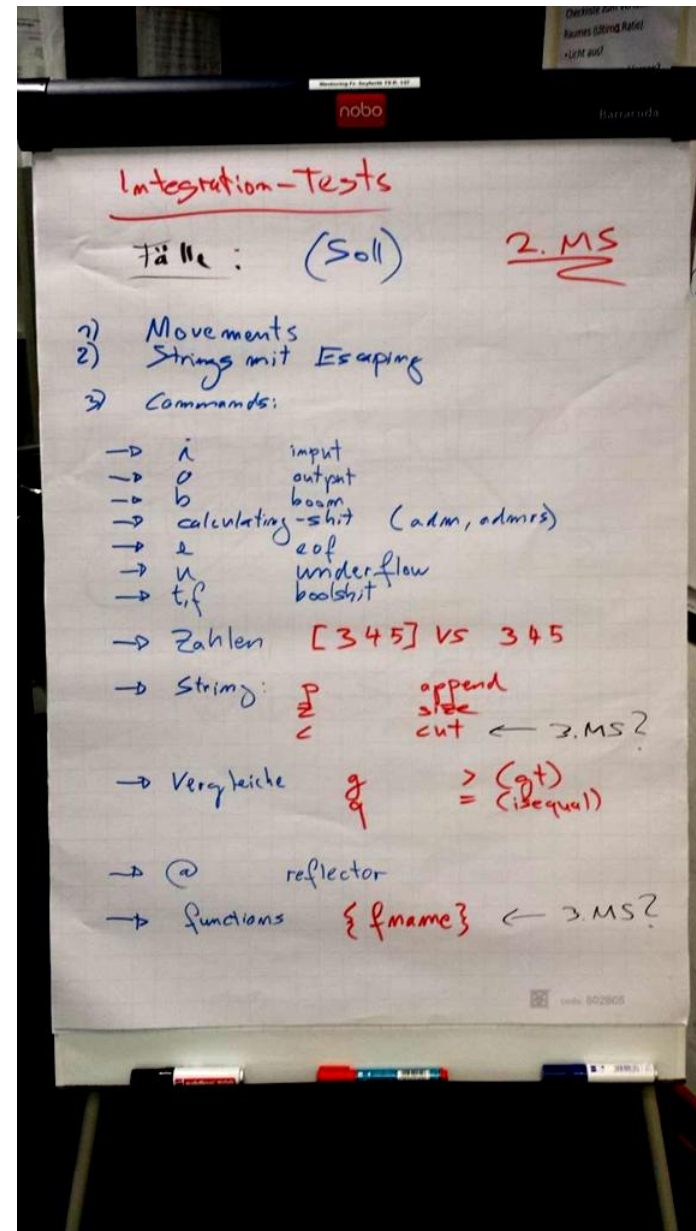 Checkliste zum
Raumes (Ultima Ratio)
•Licht aus!
nobo
Barracuda
Integration-Tests
Fälle: (Soll) 2. MS
1) Movements
2) Strings mit Escaping
3) Commands:
→ i input
→ o output
→ b boom
→ calculating-shit (adm, admrs)
→ e eof
→ u underflow
→ t,f boolshit
→ Zahlen [345] vs 345
→ String: p append
z size
c cut ← 3.MS?
→ Vergleiche g > (gt)
q = (isequal)
→ @ reflector
→ functions {fname} ← 3.MS?
code 802805